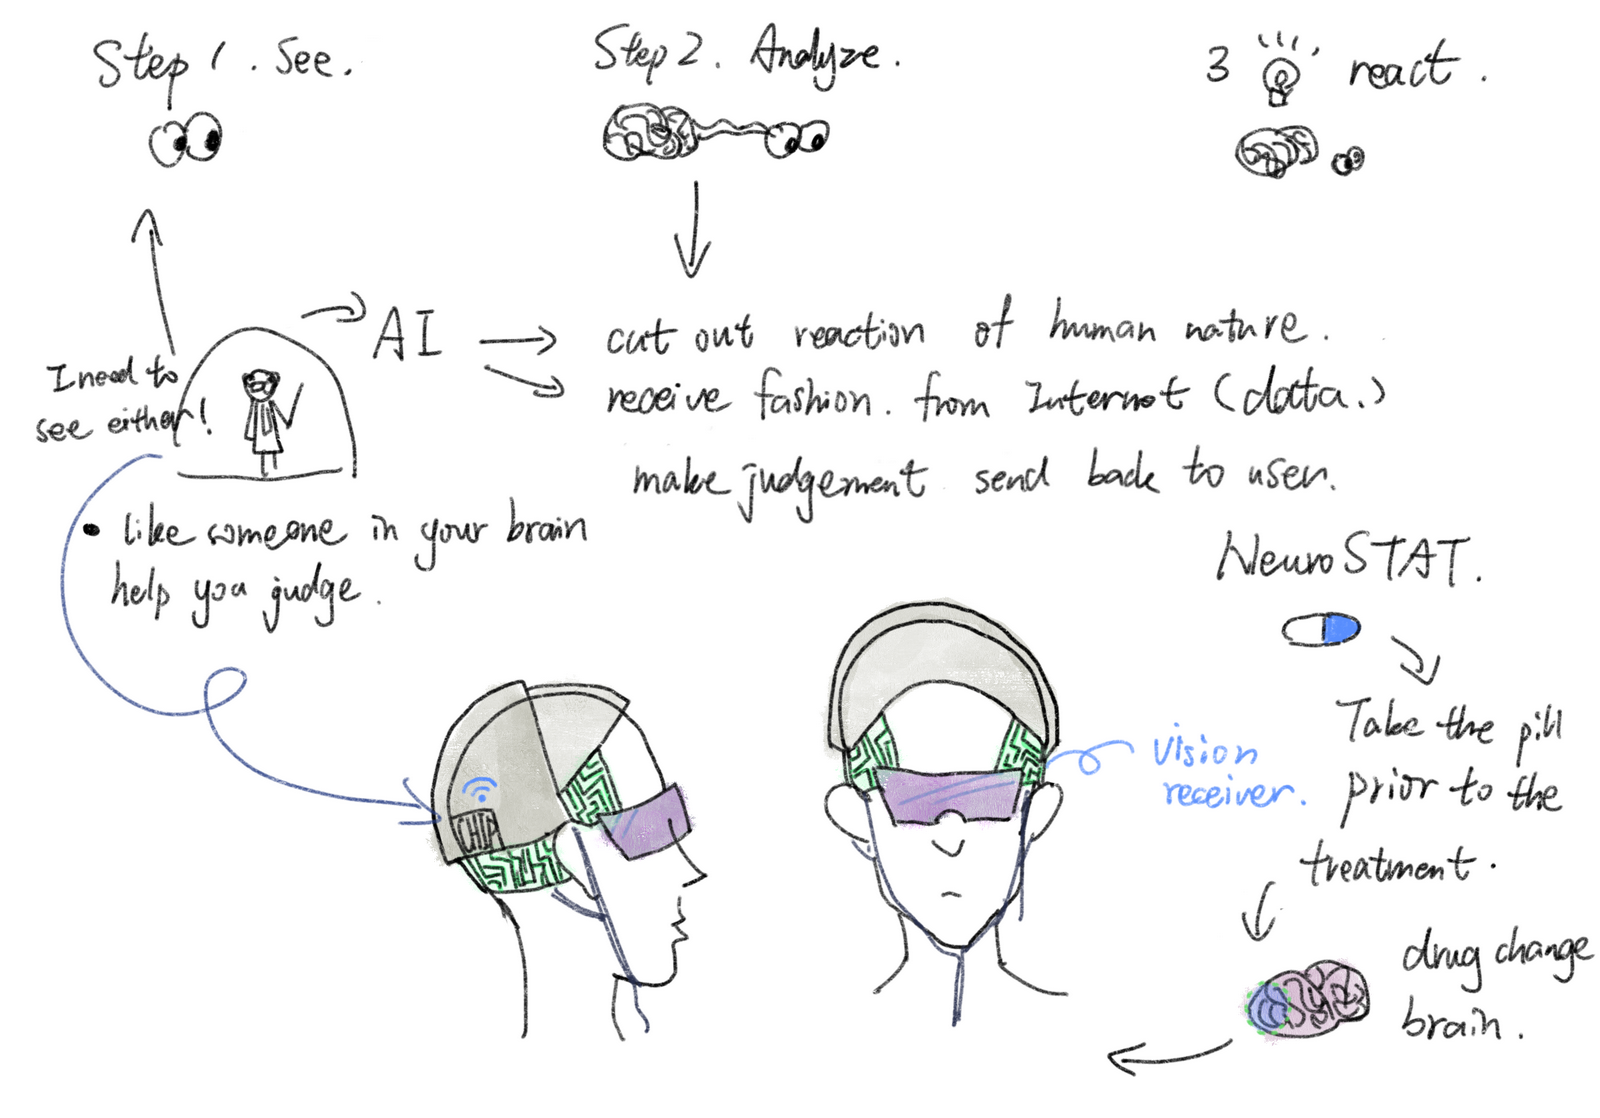 Step 1. See.
Step 2. Analyze.
3 react.
I need to
see either!
AI
cut out reaction of human nature.
receive fashion. from Internet (data.)
make judgement send back to user.
• like someone in your brain
help you judge.
NeuroSTAT.
Take the pill
prior to the
treatment.
drug change
brain.
CHIP
vision
receiver.